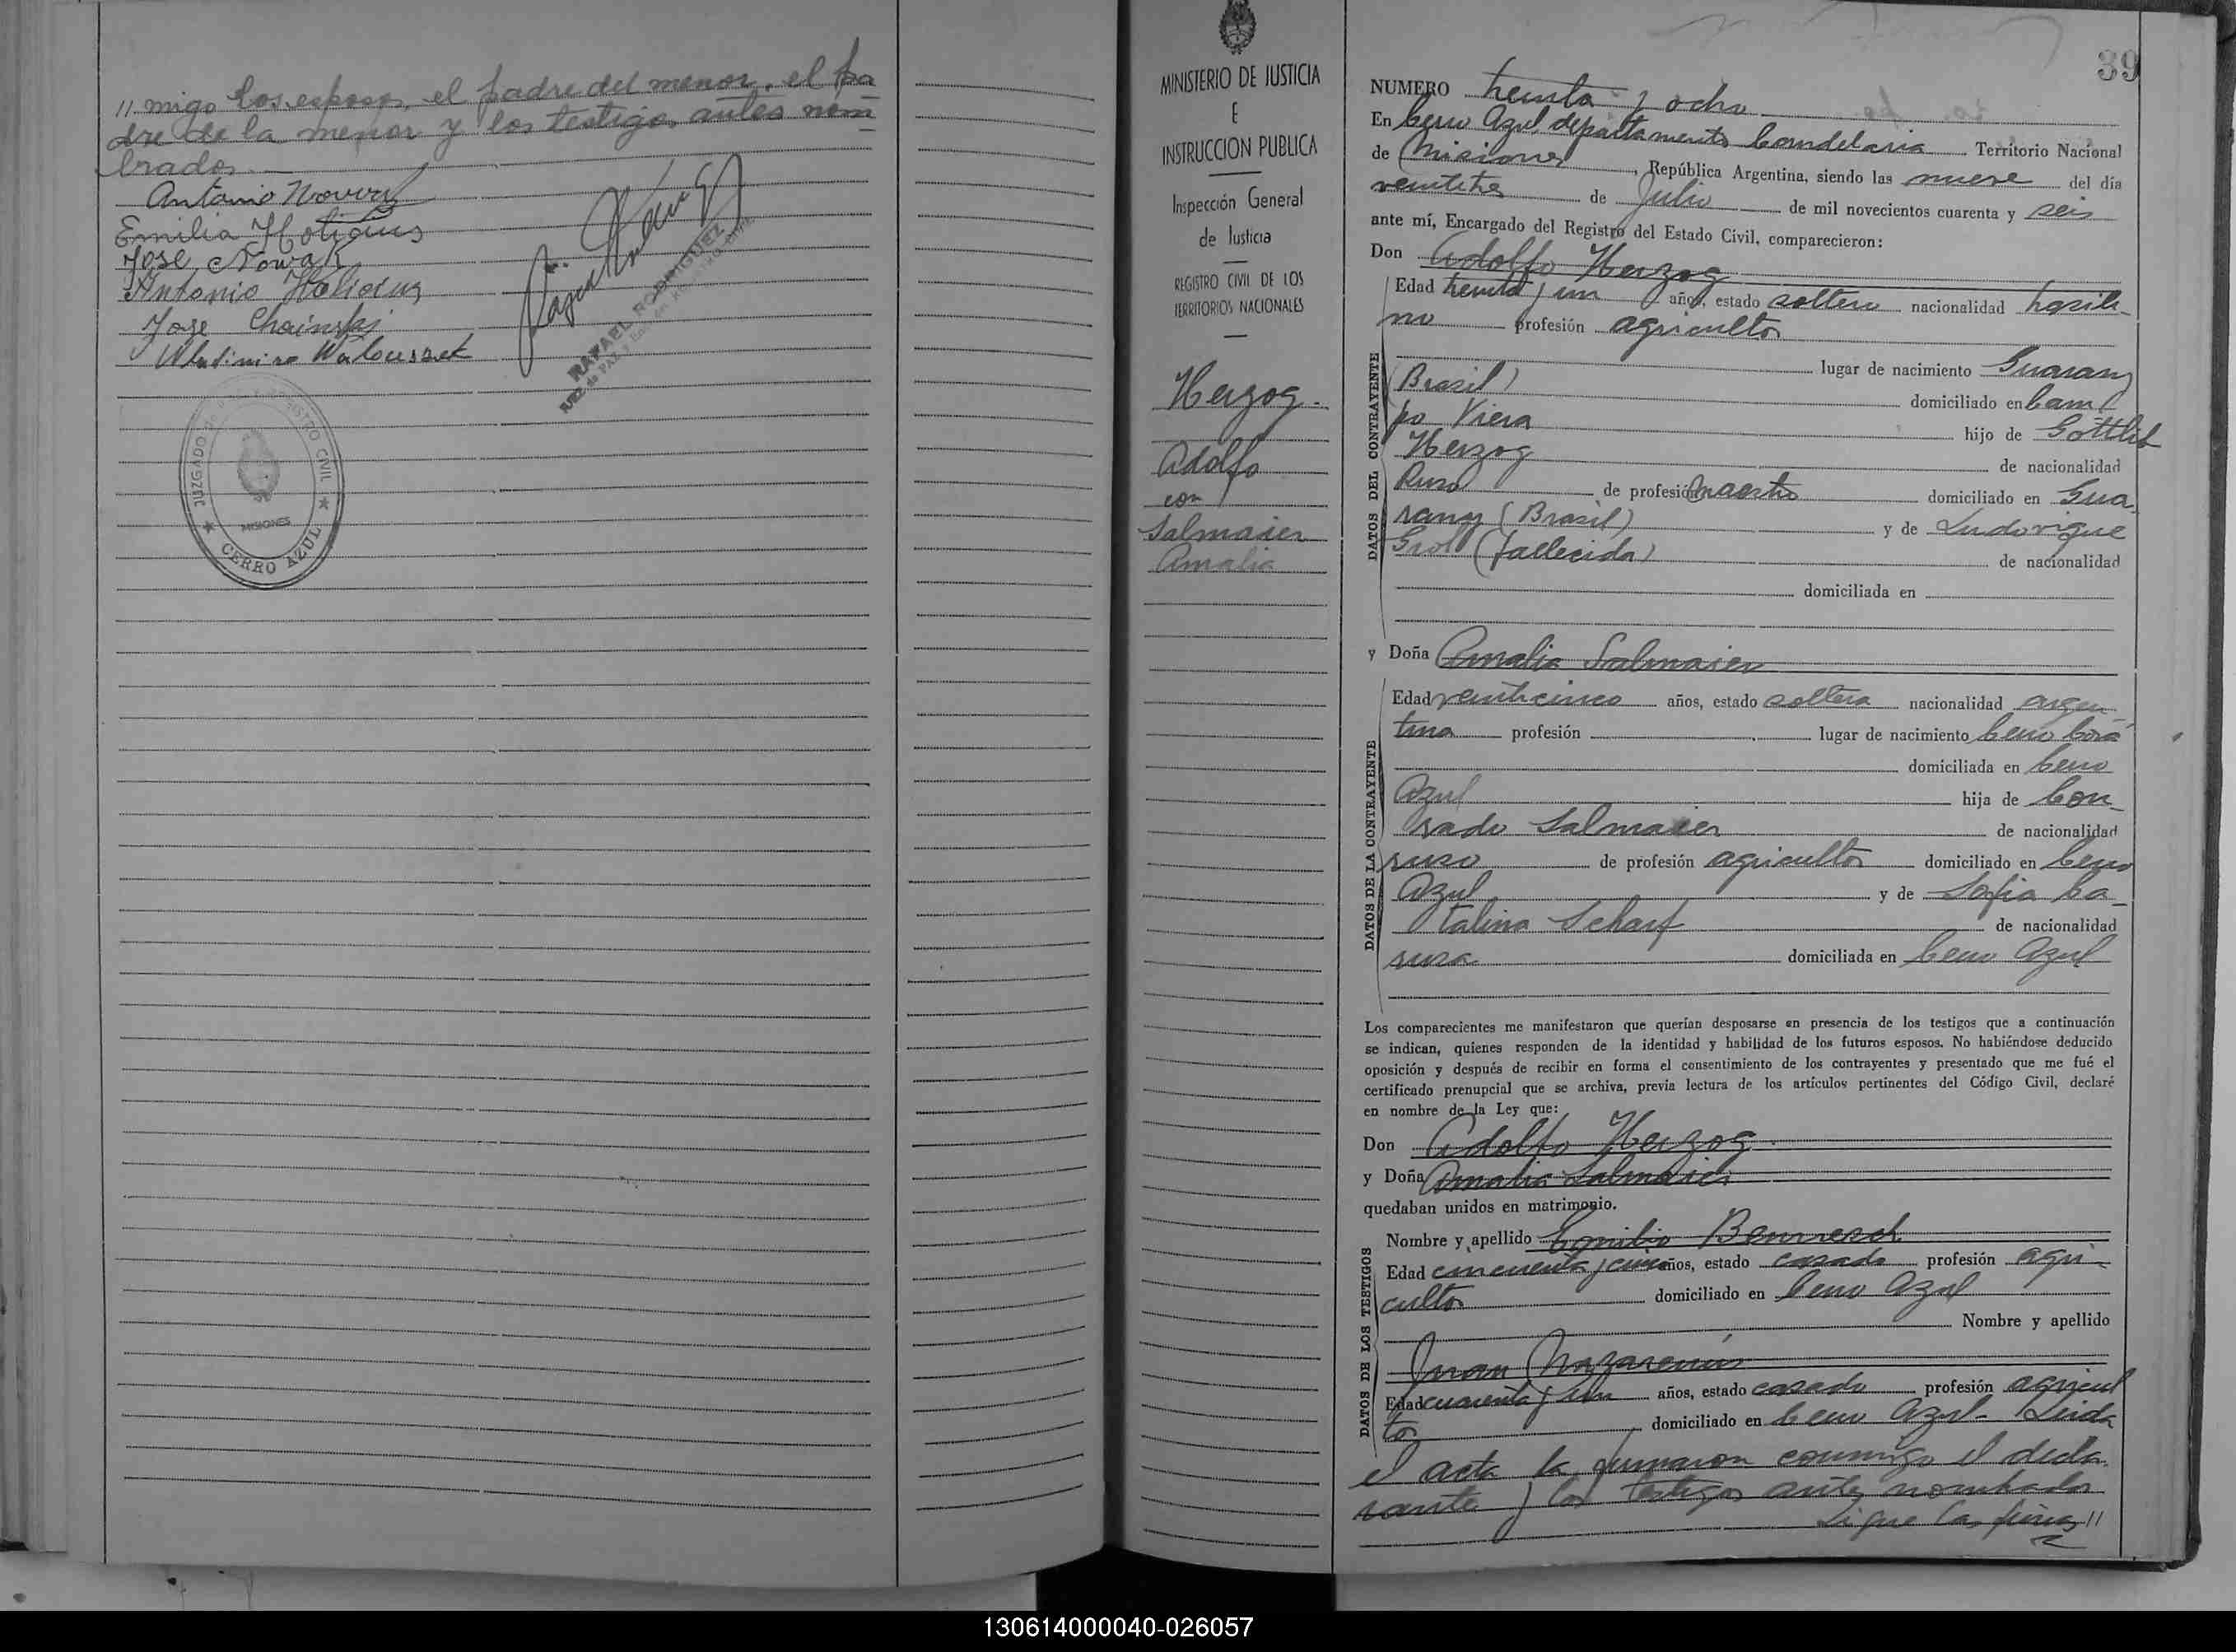 // migo los esposos, el padre del menor, el pa
dre de la menor y los testigos antes nom
brados.
Antonio Nowak
Emilia Holicius
Jose Nowak
Antonio Holicius
Jose Choinski
Wladimiro
RAFAEL RODRIGUEZ
JUEZ de PAZ
JUZGADO DE PAZ Y REGISTRO CIVIL
MISIONES
CERRO AZUL
MINISTERIO DE JUSTICIA
E
INSTRUCCION PUBLICA
Inspección General
de Justicia
REGISTRO CIVIL DE LOS
TERRITORIOS NACIONALES
Herzog.
Adolfo
con
Salmaier
Amalia
39
NUMERO treinta y ocho
En Cerro Azul, departamento Candelaria Territorio Nacional
de Misiones, República Argentina, siendo las nueve del día
veintitres de Julio de mil novecientos cuarenta y seis
ante mí, Encargado del Registro del Estado Civil, comparecieron:
Don Adolfo Herzog
DATOS DEL CONTRAYENTE
Edad treinta y un años, estado soltero nacionalidad brasile-
no profesión agricultor
lugar de nacimiento Guarany
(Brasil) domiciliado en Cam
po Viera hijo de Gottlib
Herzog de nacionalidad
Ruso de profesión Maestro domiciliado en Gua-
rany (Brasil) y de Ludovique
Grol (fallecida) de nacionalidad
domiciliada en
y Doña Amalia Salmaier
DATOS DE LA CONTRAYENTE
Edad veinticinco años, estado soltera nacionalidad argen-
tina profesión lugar de nacimiento Cerro Corá
domiciliada en Cerro
Azul hija de Con-
rado Salmaier de nacionalidad
ruso de profesión agricultor domiciliado en Cerro
Azul y de Sofia Ca-
talina Scharf de nacionalidad
rusa domiciliada en Cerro Azul
Los comparecientes me manifestaron que querían desposarse en presencia de los testigos que a continuación
se indican, quienes responden de la identidad y habilidad de los futuros esposos. No habiéndose deducido
oposición y después de recibir en forma el consentimiento de los contrayentes y presentado que me fué el
certificado prenupcial que se archiva, previa lectura de los artículos pertinentes del Código Civil, declaré
en nombre de la Ley que:
Don Adolfo Herzog
y Doña Amalia Salmaier
quedaban unidos en matrimonio.
DATOS DE LOS TESTIGOS
Nombre y apellido Emilio
Edad cincuenta y cinco años, estado casado profesión agri-
cultor domiciliado en Cerro Azul
Nombre y apellido
Juan Nazarenius
Edad cuarenta y un años, estado casado profesión agricul
tor domiciliado en Cerro Azul - Leida
el acta la firmaron conmigo el decla-
rante y los testigos antes nombrados
Sigue las firmas //
130614000040-026057